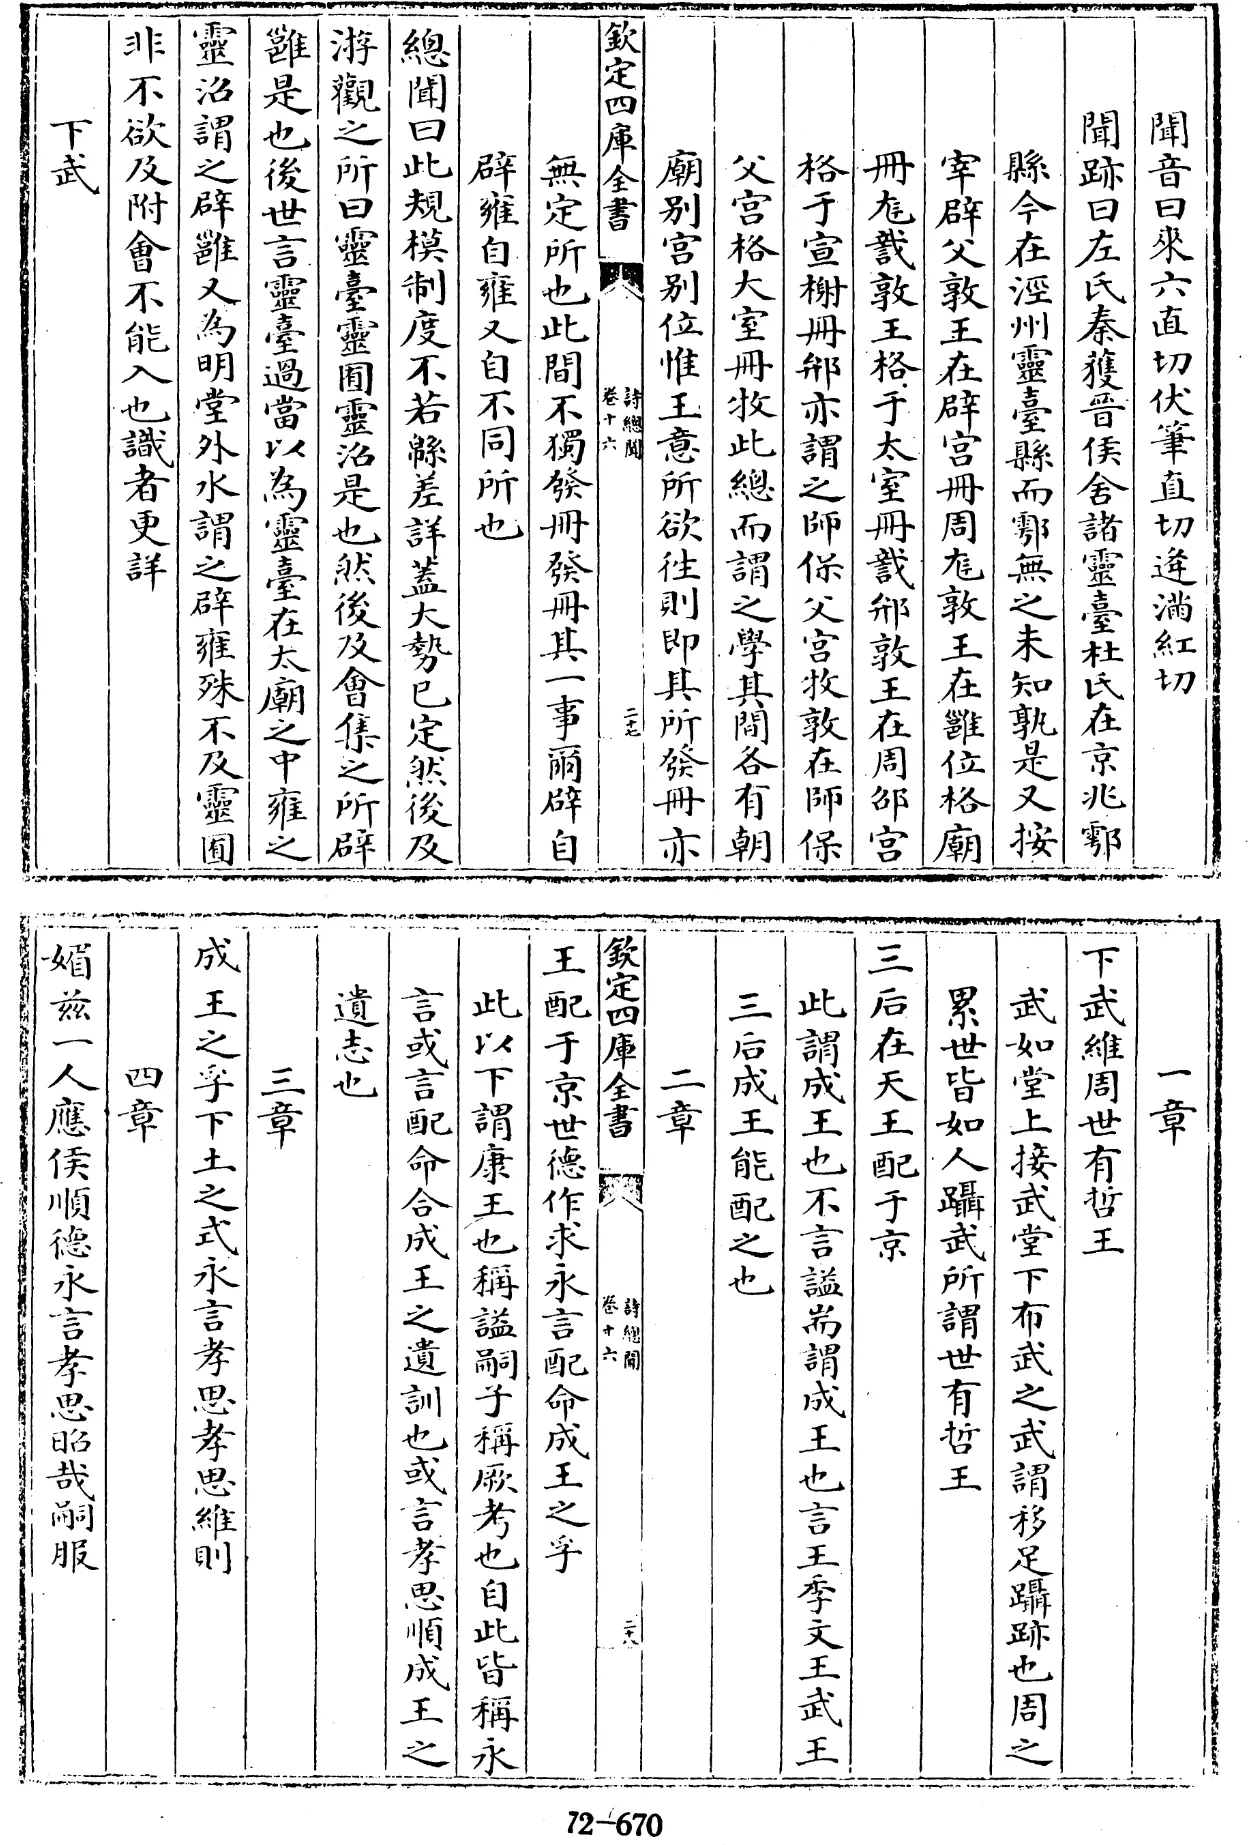 聞音曰來六直切伏筆直切逄滿紅切
聞跡曰左氏秦獲晉侯舍諸靈臺杜氏在京兆鄠
縣今在涇州靈臺縣而鄠無之未知孰是又按
宰辟父敦王在辟宫冊周敦王在雝位格廟
冊敦王格于太室冊敦王在周邵宫
格于宣榭冊亦謂之師保父宫牧敦在師保
父宫格大室冊牧此總而謂之學其間各有朝
廟别宫别位惟王意所欲徃則即其所發冊亦
欽定四庫全書
詩總聞
卷十六
二十七
無定所也此間不獨發冊發冊其一事爾辟自
辟雍自雍又自不同所也
總聞曰此規模制度不若緜差詳蓋大勢已定然後及
游觀之所曰靈臺靈囿靈沼是也然後及會集之所辟
雝是也後世言靈臺過當以為靈臺在太廟之中雍之
靈沼謂之辟雝又為明堂外水謂之辟雍殊不及靈囿
非不欲及附會不能入也識者更詳
下武
一章
下武維周世有哲王
武如堂上接武堂下布武之武謂移足躡跡也周之
累世皆如人躡武所謂世有哲王
三后在天王配于京
此謂成王也不言謚耑謂成王也言王季文王武王
三后成王能配之也
二章
欽定四庫全書
詩總聞
卷十六
二十八
王配于京世德作求永言配命成王之孚
此以下謂康王也稱謚嗣子稱厥考也自此皆稱永
言或言配命合成王之遺訓也或言孝思順成王之
遺志也
三章
成王之孚下土之式永言孝思孝思維則
四章
媚兹一人應侯順德永言孝思昭哉嗣服
72-670